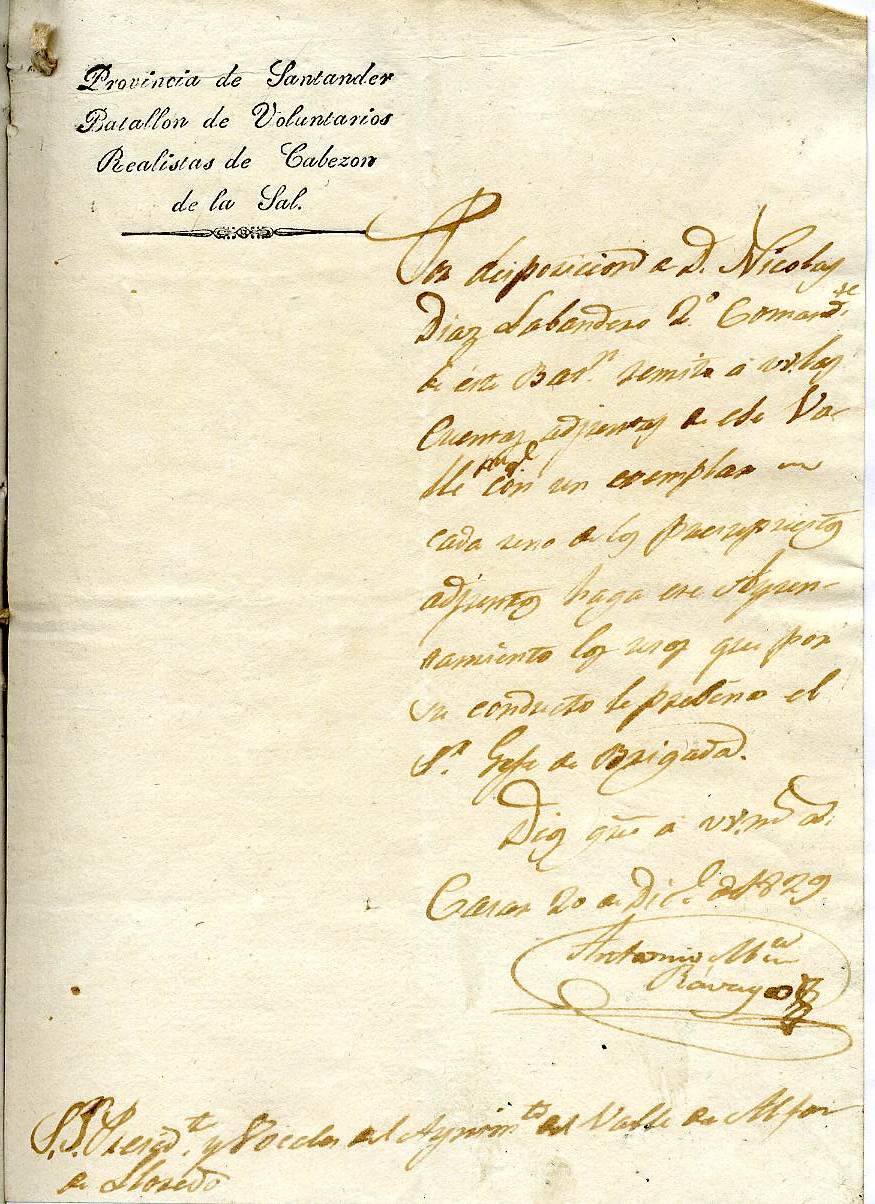 Provincia de Santander
Batallon de Voluntarios
Realistas de Cabezon
de la Sal.
Por disposicion de D. Nicolas
Diaz Labandero 2.º Comand.te
de este Bat.n remito a vs. las
Cuentas adjuntas de ese Va-
lle con un exemplar en
cada uno de los presupuestos
adjuntos haga ese Ayun-
tamiento los usos que por
su conducto le previno el
S.r Gefe de Brigada.
Dios gue a vs. m.s a.s
Casar 20 de Dic.e de 1829
Antonio M.a
Rávago
S.S. Presid.te y Vocales del Ayuntm.to del Valle de Alfoz
de Lloredo